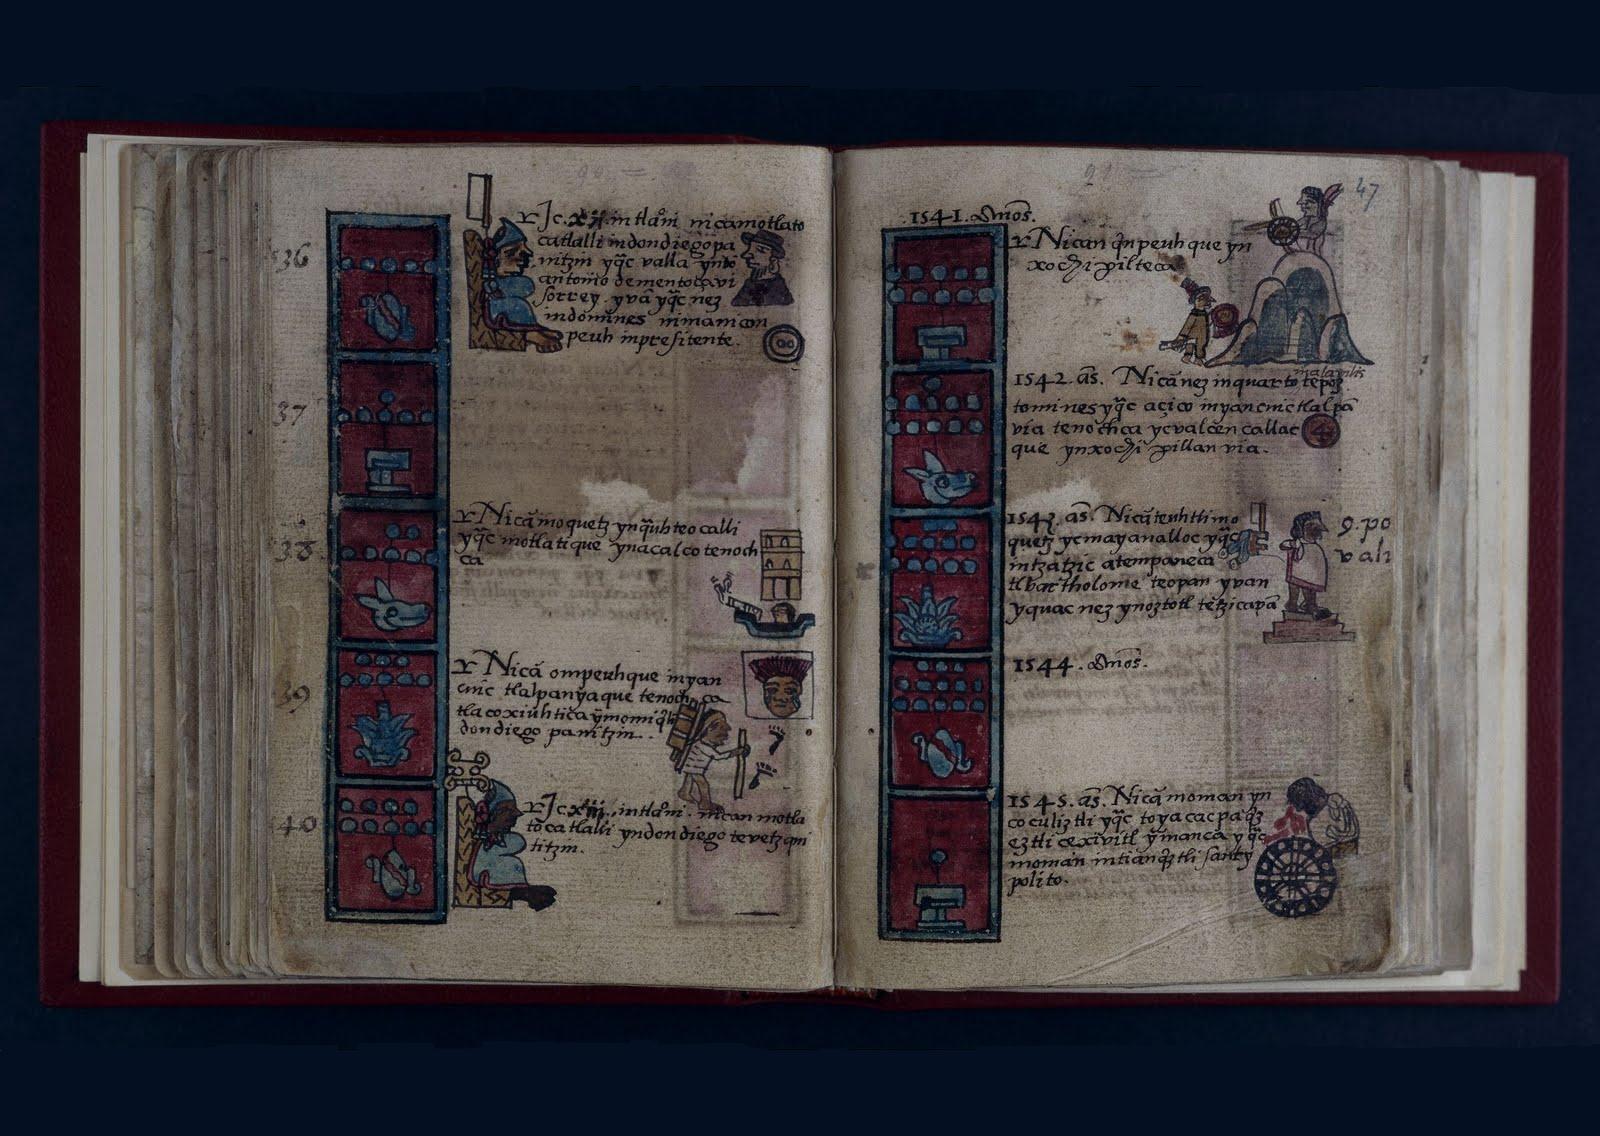 36
Jc. xii. intlāni nicamotlato
catlalli indondiegopa
nitzin yq̄c valla ynto
antonio dementoçavi
sorrey. yvā yq̄c nez
indomines nimanican
peuh inpresitente.
37
38
Nicā moquetz ynq̄uhteocalli
yq̄c motlatique ynacalco tenoch
ca
39
Nicā ompeuhque inyan
cuic tlalpan yaque tenochca
tlacoxiuhtica
dondiego panitzin.
40
Jc. xiii. intlāni. nican motla
tocatlalli yndon diego tevetzqui
titzin.
47
1541. Amōs.
Nican q̄npeuhque yn
xochipilteca
1542. as. Nicā nez inquarto tepoz
tomines yq̄c açico inyancuictlalpā
via tenochca ycvalcēn callac
que ynxochipillan via.
1543. as. Nicā teuhtli mo
quetz ycmayanalloc yq̄c
intzatzic atempaneca
tlbartholome teopan yvan
yquac nez ynoztotl tētzicapā
9. po
vali
1544. Amōs.
1545. as. Nicā moman yn
cocoliztli yq̄c toyacacpa q̄z
eztli cexivitl ymancā yq̄c
moman intianq̄ztli santy
polito.